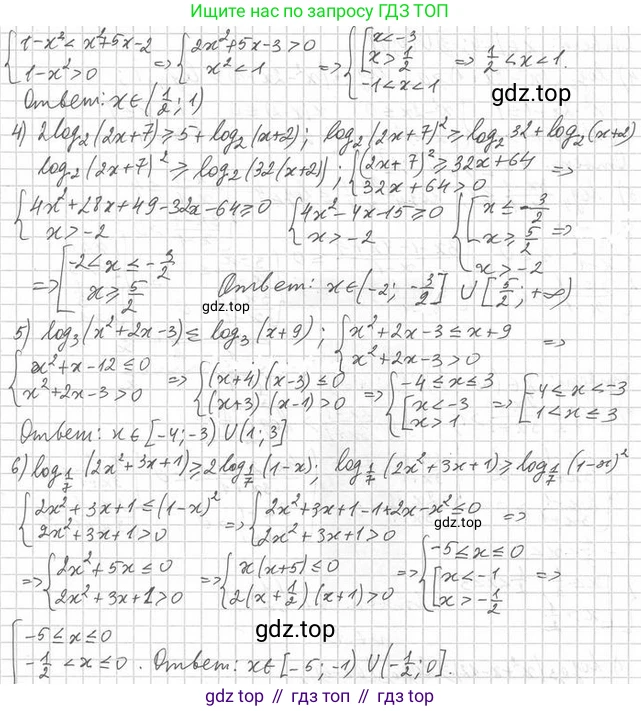 Ищите нас по запросу ГДЗ ТОП
{1-x²<x²+5x-2 1-x²>0 => {2x²+5x-3>0 x²<1 => {[x<-3 x>1/2 -1<x<1 => 1/2<x<1.
Ответ: x∈(1/2; 1)
gdz.top
4) 2log₂(2x+7)≥5+log₂(x+2); log₂(2x+7)²≥log₂32+log₂(x+2)
log₂(2x+7)²≥log₂(32(x+2)); {(2x+7)²≥32x+64 32x+64>0 =>
{4x²+28x+49-32x-64≥0 x>-2 {4x²-4x-15≥0 x>-2 {[x≤-3/2 x≥5/2 x>-2 =>
=> [-2<x≤-3/2 x≥5/2 Ответ: x∈(-2; -3/2] U [5/2; +∞)
gdz.top
5) log₃(x²+2x-3)≤log₃(x+9); {x²+2x-3≤x+9 x²+2x-3>0 =>
{x²+x-12≤0 x²+2x-3>0 => {(x+4)(x-3)≤0 (x+3)(x-1)>0 => {-4≤x≤3 [x<-3 x>1 => [-4≤x<-3 1<x≤3
Ответ: x∈[-4;-3) U (1;3]
6) log_1/7 (2x²+3x+1)≥2log_1/7 (1-x); log_1/7 (2x²+3x+1)≥log_1/7 (1-x)²
{2x²+3x+1≤(1-x)² 2x²+3x+1>0 => {2x²+3x+1-1+2x-x²≤0 2x²+3x+1>0 =>
gdz.top
=> {2x²+5x≤0 2x²+3x+1>0 => {x(x+5)≤0 2(x+1/2)(x+1)>0 => {-5≤x≤0 [x<-1 x>-1/2 =>
gdz.top
[-5≤x≤0 -1/2<x≤0. Ответ: x∈[-5; -1) U (-1/2; 0].
gdz top // гдз топ // gdz top // гдз топ